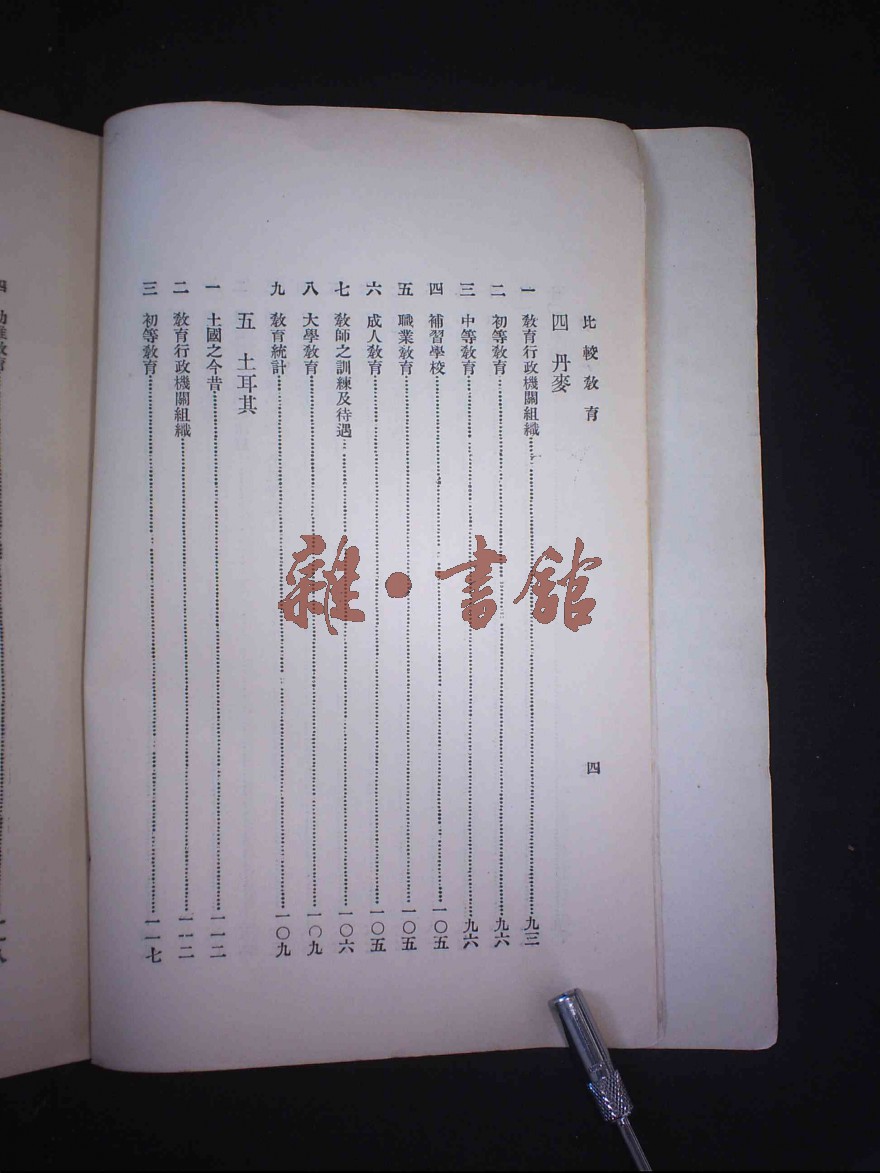 比較教育
四
四 丹麥
一 教育行政機關組織……九三
二 初等教育……九六
三 中等教育……九六
四 補習學校……一〇五
五 職業教育……一〇五
六 成人教育……一〇五
七 教師之訓練及待遇……一〇六
八 大學教育……一〇九
九 教育統計……一〇九
五 土耳其
一 土國之今昔……一一二
二 教育行政機關組織……一一二
三 初等教育……一一七
雜·書館